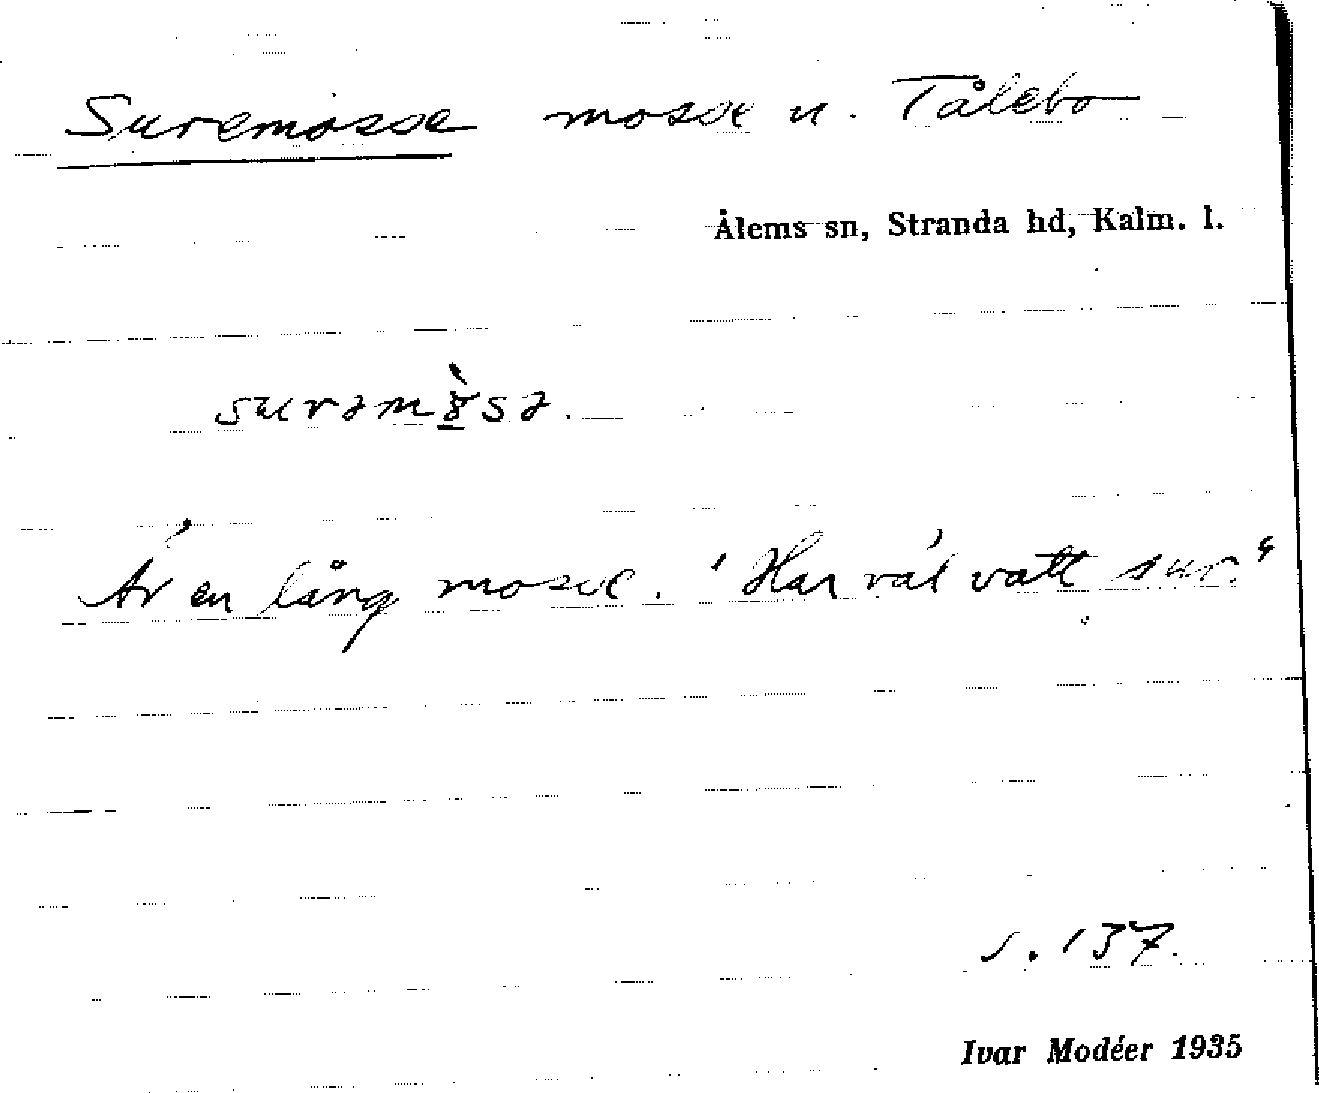 Suremosse mosse u. Tålebo
Ålems sn, Stranda hd, Kalm. l.
surəm
Är en lång mosse. "Har väl vatt sur."
s. 137.
Ivar Modéer 1935